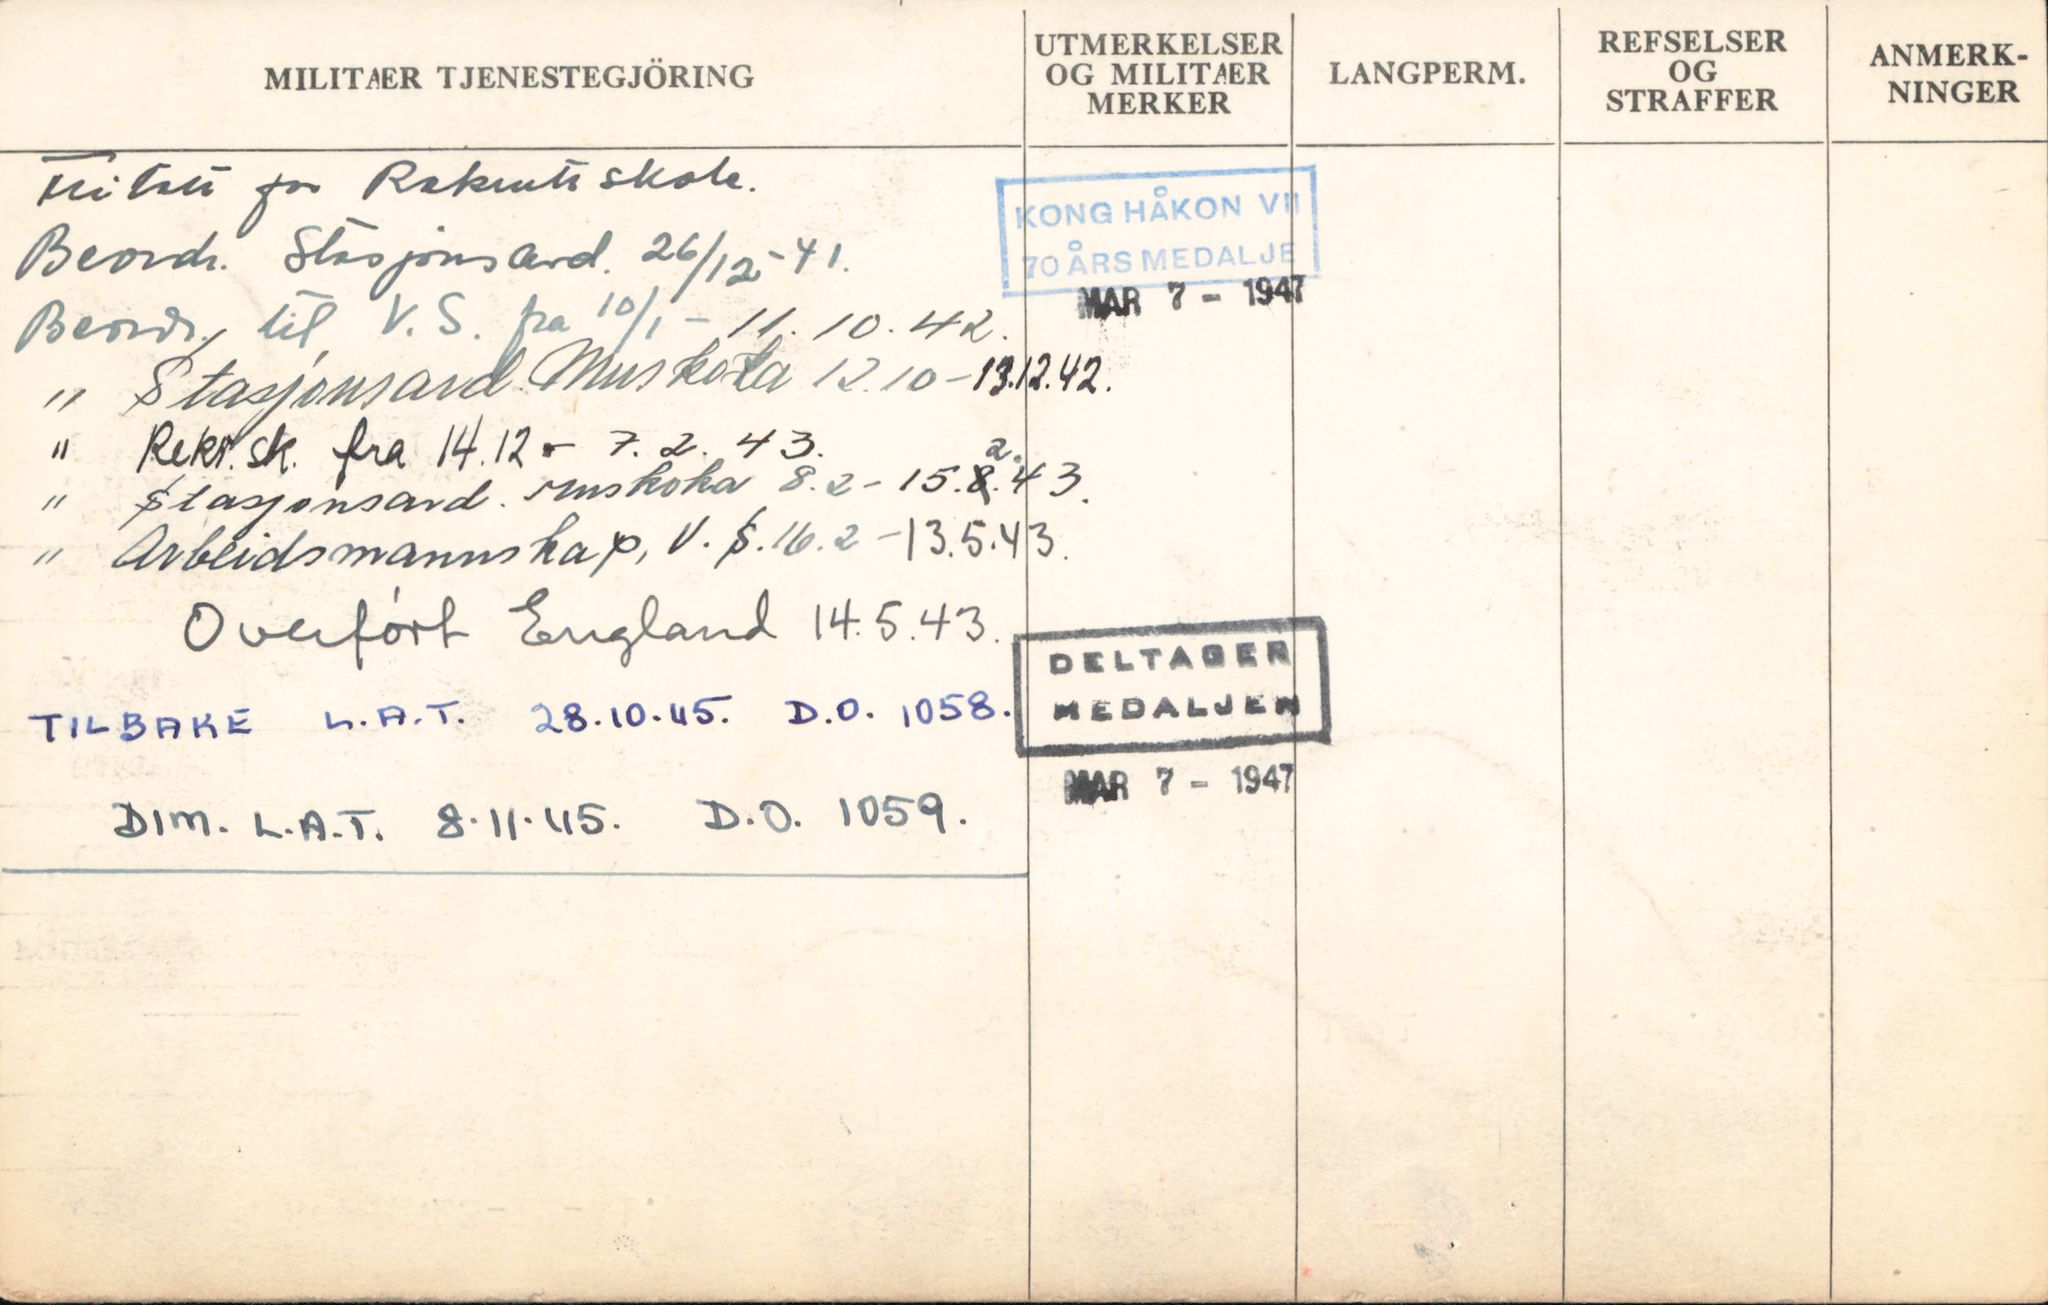 MILITÆR TJENESTEGJÖRING
UTMERKELSER
OG MILITÆR
MERKER
LANGPERM.
REFSELSER
OG
STRAFFER
ANMERK-
NINGER
Fritatt for Rekruttskole.
Beordr. Stasjonsavd. 26/12-41.
Beordr. til V.S. fra 10/1 - 11.10.42.
" Stasjonsavd. Muskoka 12.10 - 13.12.42.
" Rekr.sk. fra 14.12 - 7.2.43.
" Stasjonsavd. Muskoka 8.2 - 15.2.43.
" Arbeidsmannskap, V.S. 16.2 - 13.5.43.
Overfört England 14.5.43.
TILBAKE L.A.T. 28.10.45. D.O. 1058.
DIM. L.A.T. 8.11.45. D.O. 1059.
KONG HÅKON VII
70 ÅRS MEDALJE
MAR 7 - 1947
DELTAGER
MEDALJEN
MAR 7 - 1947